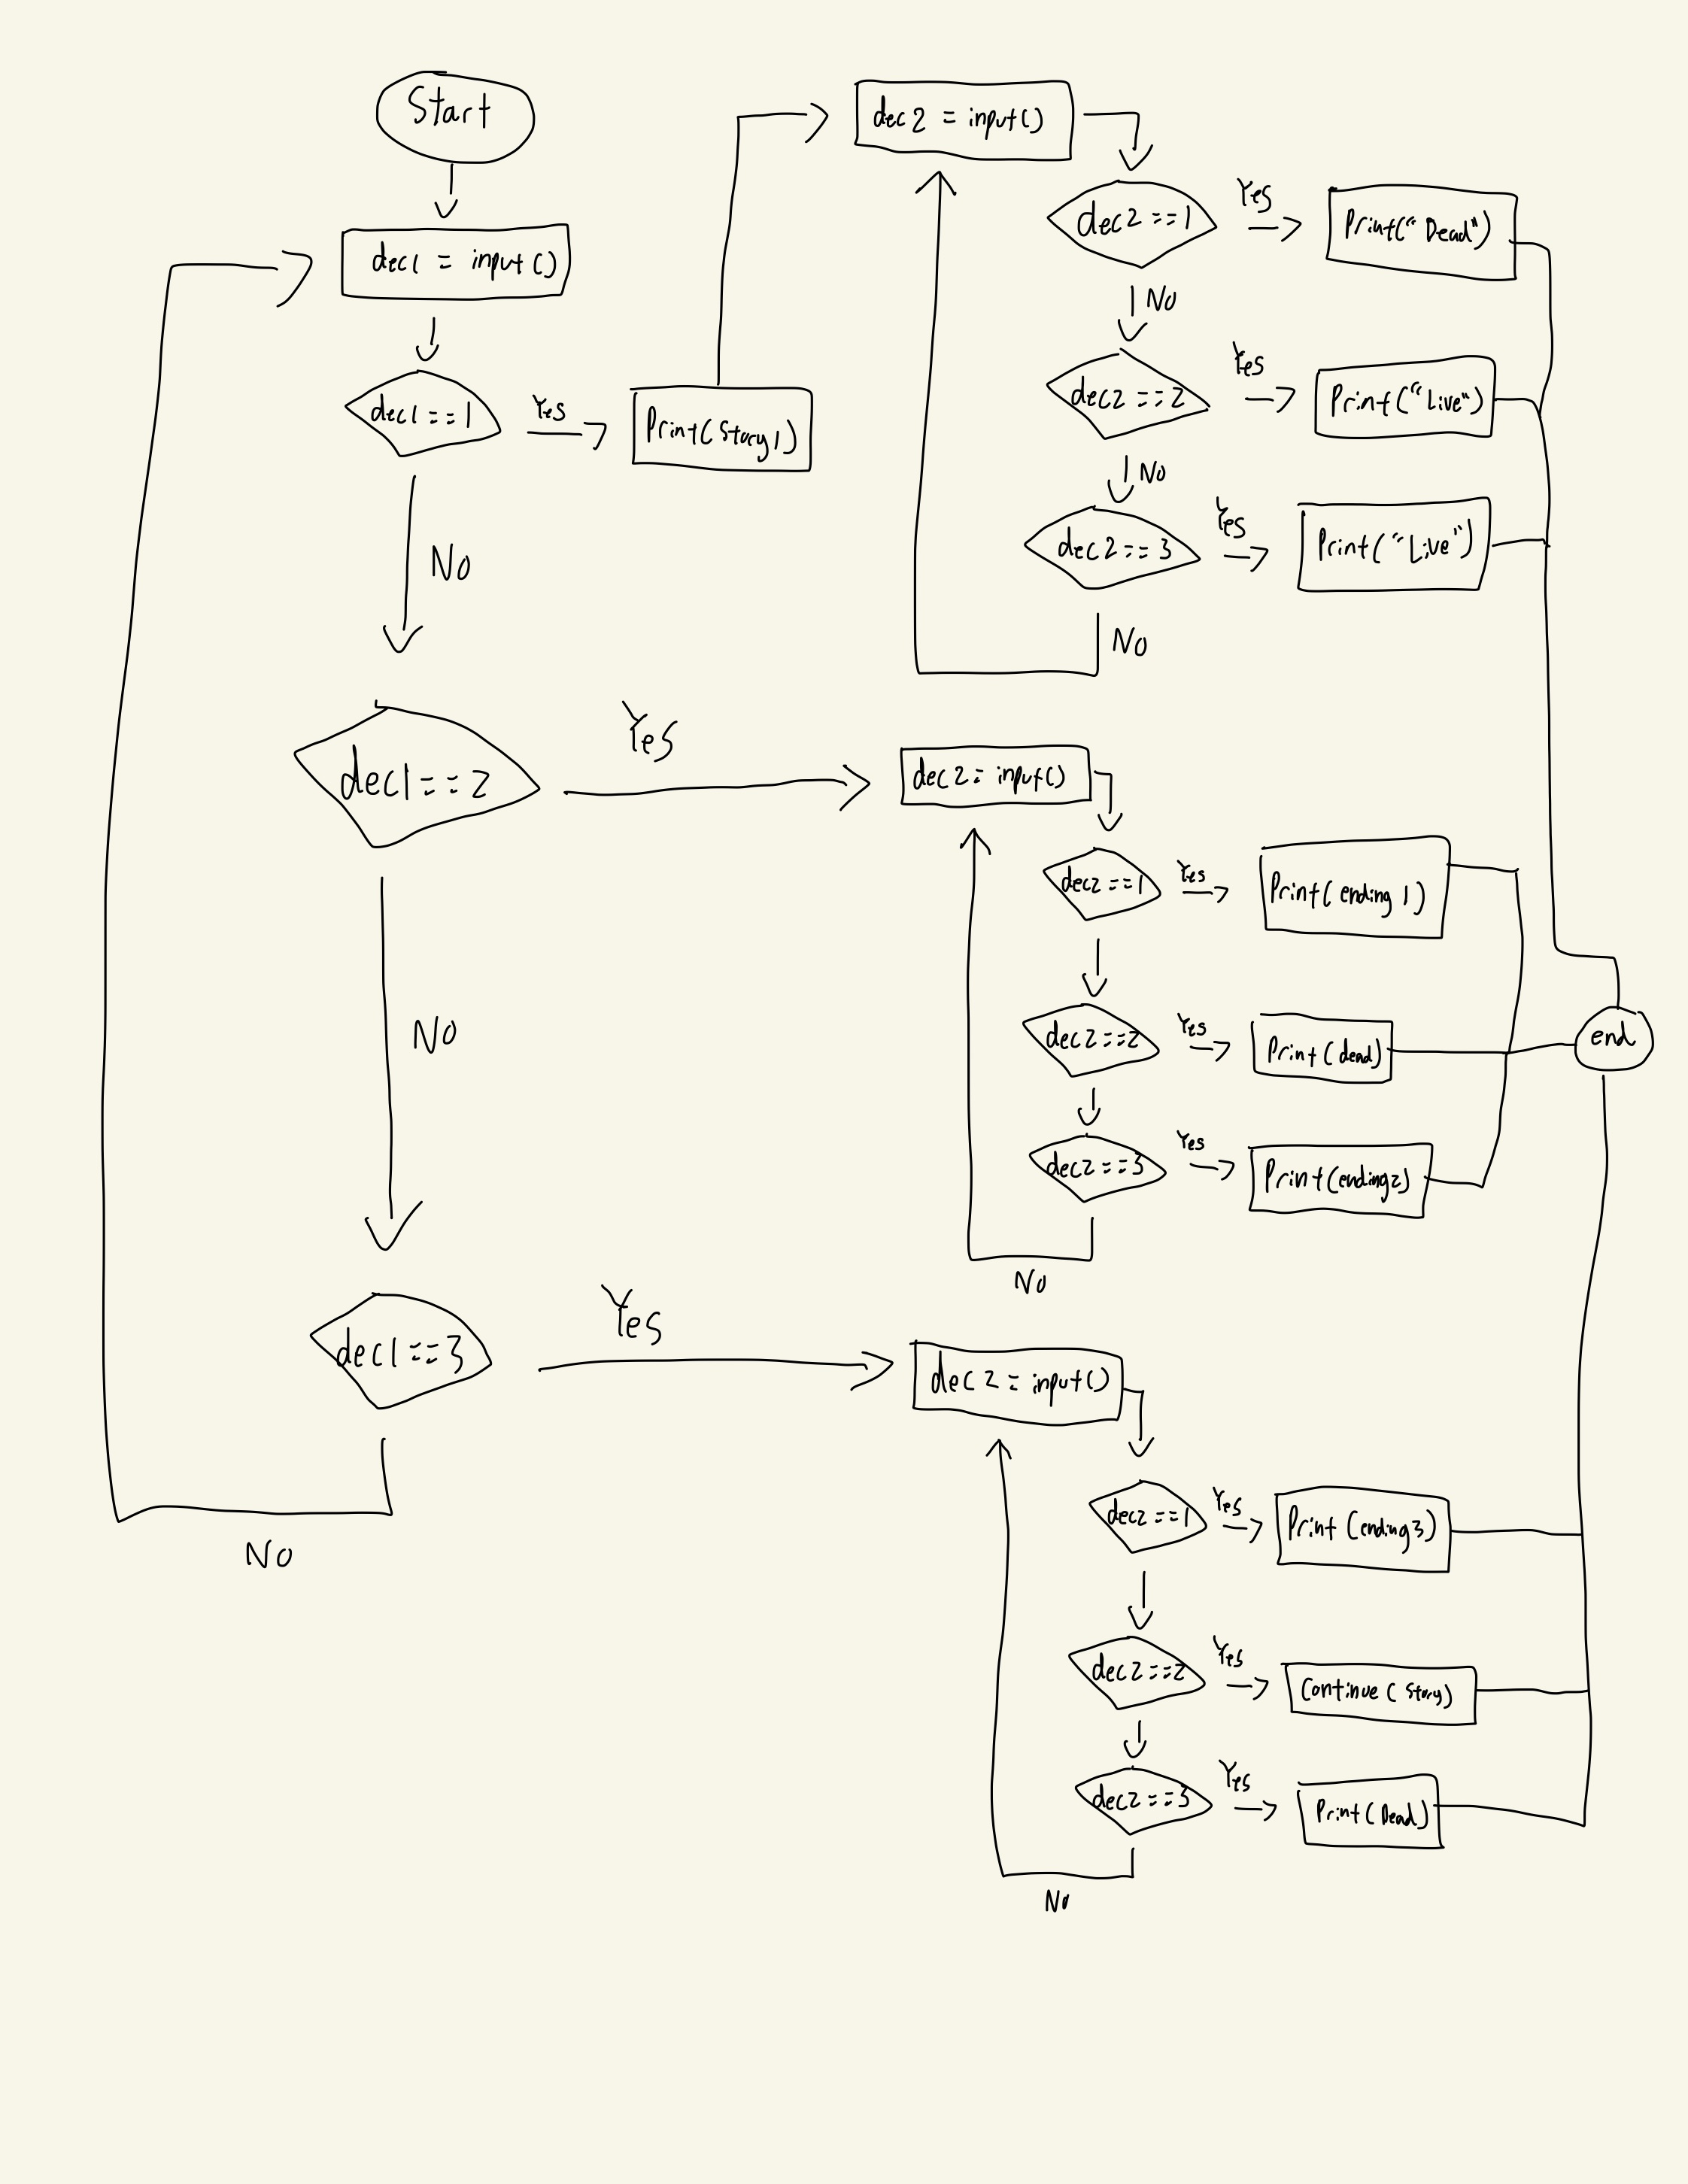 Start
dec1 = input()
dec1==1
Yes
Print(Story1)
No
dec1==2
Yes
No
dec1==3
Yes
No
dec2 = input()
dec2==1
Yes
Print("Dead")
No
dec2==2
Yes
Print("Live")
No
dec2==3
Yes
Print("Live")
No
dec2=input()
dec2==1
Yes
Print(ending 1)
dec2==2
Yes
Print(dead)
dec2==3
Yes
Print(ending2)
No
end
dec2=input()
dec2==1
Yes
Print(ending3)
dec2==2
Yes
Continue(Story)
dec2==3
Yes
Print(Dead)
No